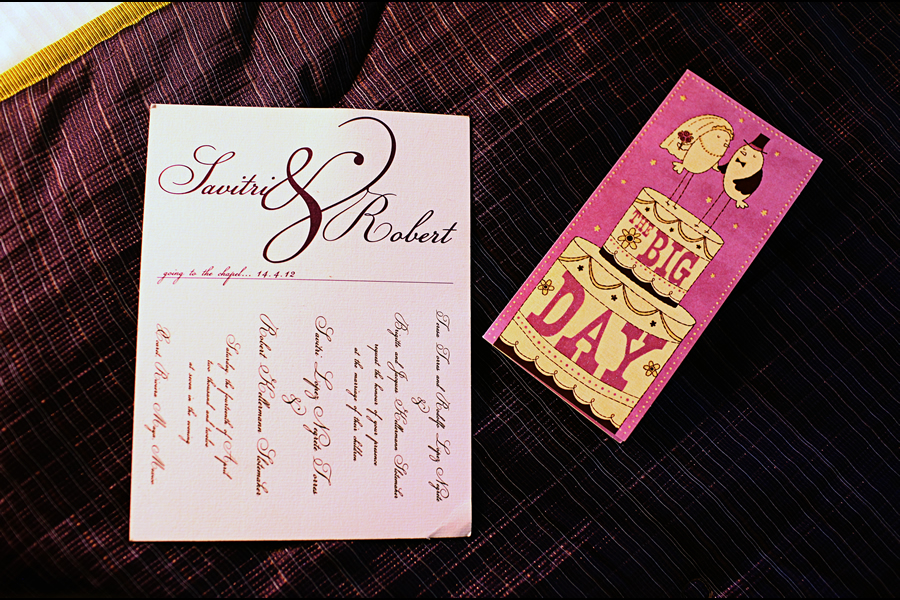 Savitri & Robert
going to the chapel... 14.4.12
Teresa Torres and Rodolfo Lopez Negrete
&
Brigitte and Jorgen Kellermann Slotemaker
request the honor of your presence
at the marriage of their children
Savitri Lopez Negrete Torres
&
Robert Kellermann Slotemaker
Saturday the fourteenth of April
two thousand and twelve
at seven in the evening
Riviera Maya Mexico
THE
BIG
DAY